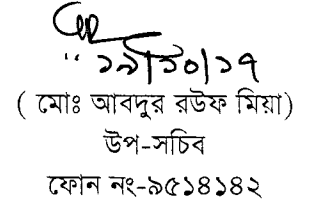 ১৯/১০/১৭
( মোঃ আবদুর রউফ মিয়া)
উপ-সচিব
ফোন নং-৯৫১৪১৪২